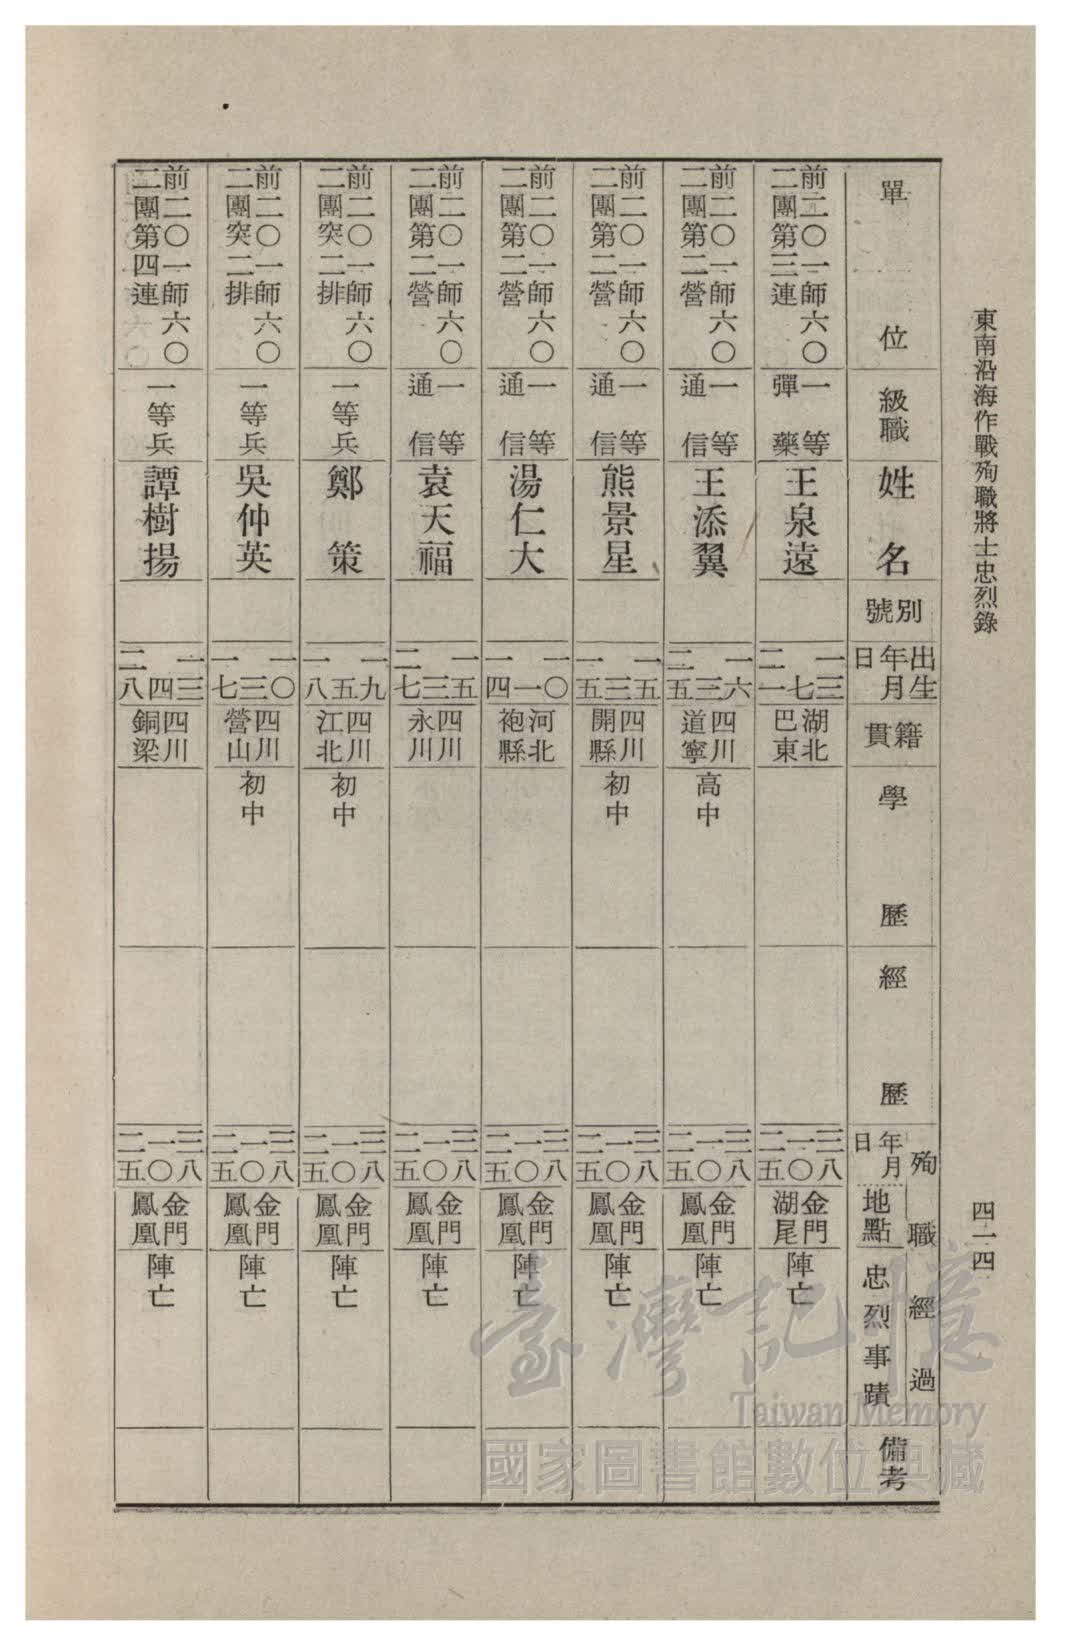 東南沿海作戰殉職將士忠烈錄
四一四
單位
級職
姓名
別號
出生年月日
籍貫
學歷
經歷
殉職經過
年月日
地點
忠烈事蹟
備考
前二〇一師六〇二團第三連
一等彈藥
王泉遠
一三 七 二一
湖北巴東
三八 一〇 二五
金門湖尾
陣亡
前二〇一師六〇二團第二營
一等通信
王添翼
一六 三 二五
四川道寧
高中
三八 一〇 二五
金門鳳凰
陣亡
前二〇一師六〇二團第二營
一等通信
熊景星
一五 三 一五
四川開縣
初中
三八 一〇 二五
金門鳳凰
陣亡
前二〇一師六〇二團第二營
一等通信
湯仁大
一〇 一 一四
河北袍縣
三八 一〇 二五
金門鳳凰
陣亡
前二〇一師六〇二團第二營
一等通信
袁天福
一五 三 二七
四川永川
三八 一〇 二五
金門鳳凰
陣亡
前二〇一師六〇二團突二排
一等兵
鄭策
一九 五 一八
四川江北
初中
三八 一〇 二五
金門鳳凰
陣亡
前二〇一師六〇二團突二排
一等兵
吳仲英
一〇 三 一七
四川營山
初中
三八 一〇 二五
金門鳳凰
陣亡
前二〇一師六〇二團第四連
一等兵
譚樹揚
一三 四 二八
四川銅梁
三八 一〇 二五
金門鳳凰
陣亡
臺灣記憶
Taiwan Memory
國家圖書館數位典藏